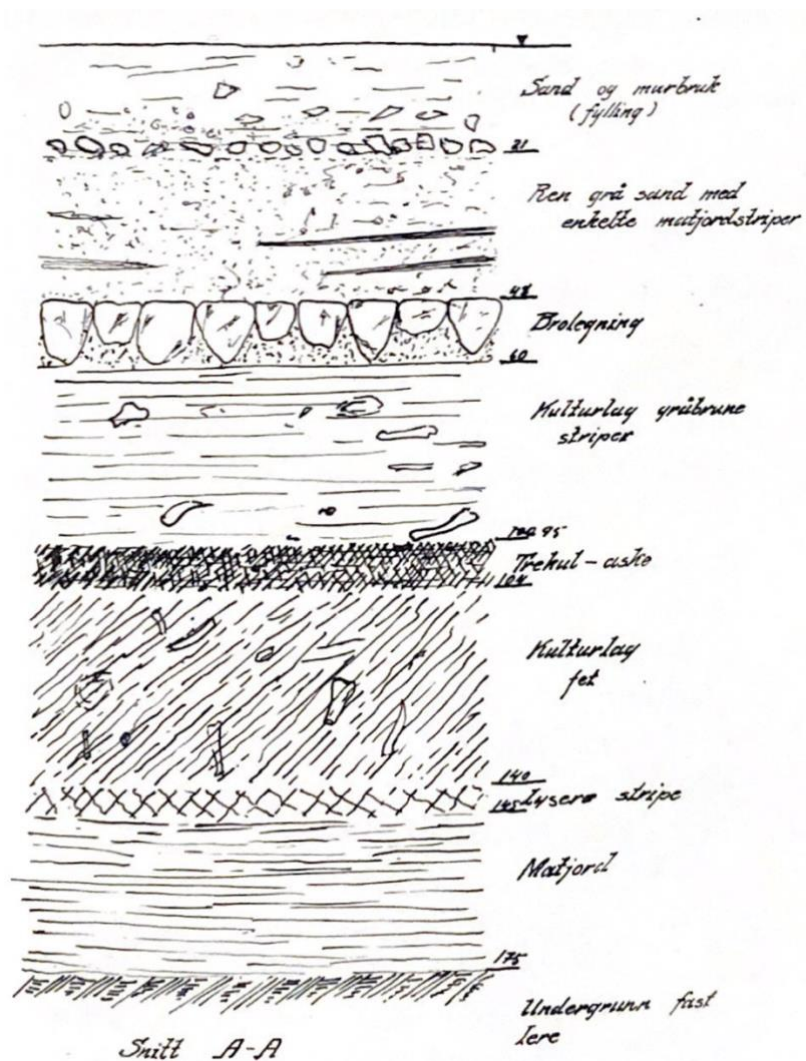 Sand og murbruk
(fylling)
21
Ren grå sand med
enkelte matjordstriper
48
Brolegning
60
Kulturlag gråbrune
striper
95
Trekul-aske
104
Kulturlag
fet
140
145 Lysere stripe
Matjord
175
Undergrunn fast
lere
Snitt A-A